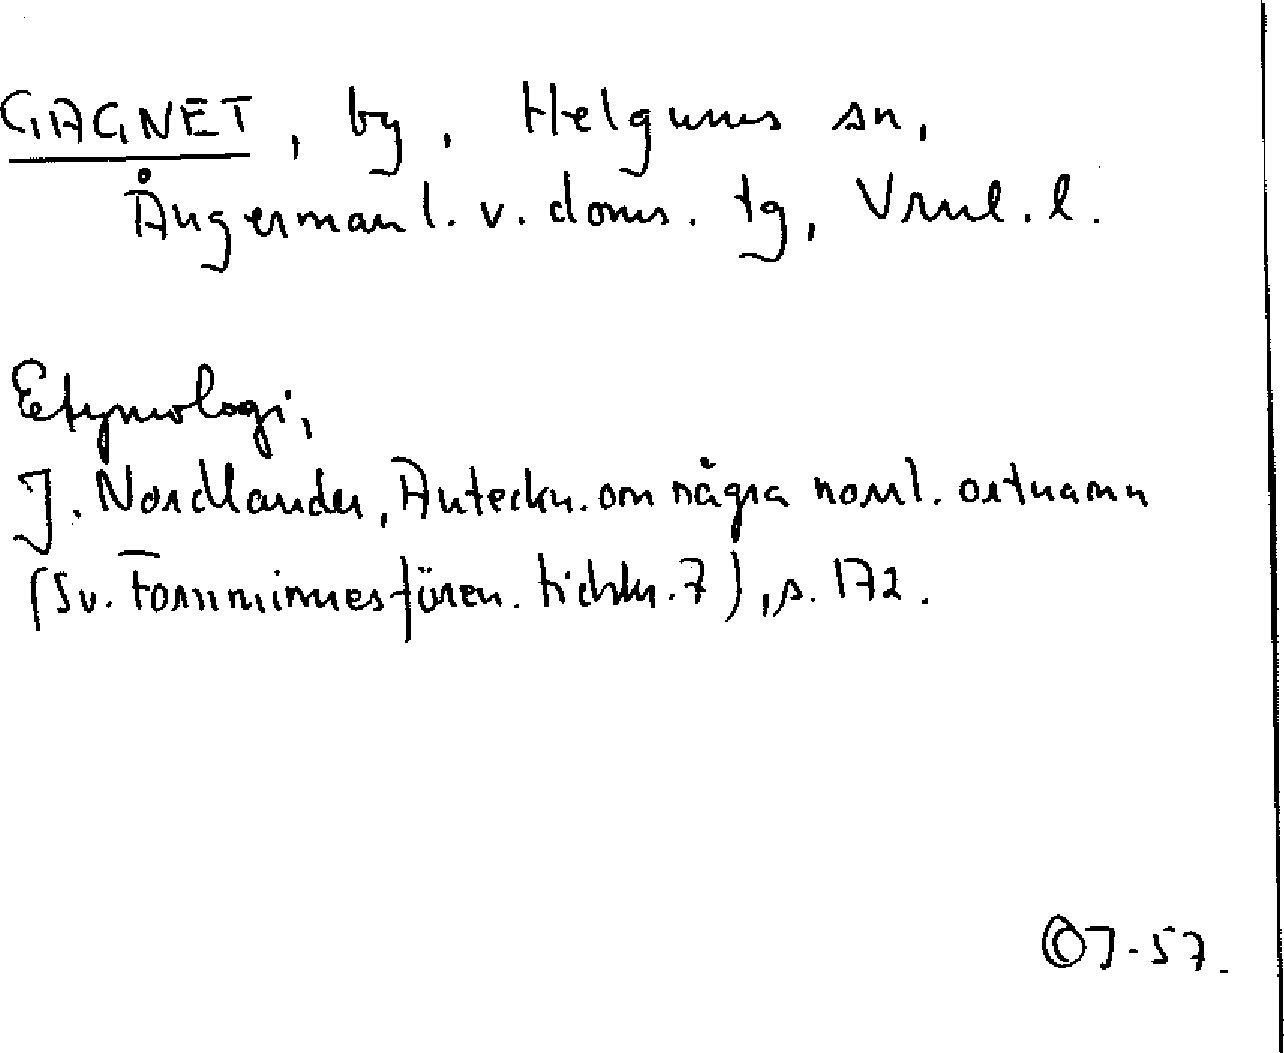 GAGNET, by, Helgums sn,
Ångermanl. v. doms. tg, Vrnl. l.
Etymologi,
J. Nordlander, Anteckn. om några norrl. ortnamn
(Sv. Fornminnesfören. tidskr. 7), s. 172.
©J-57.